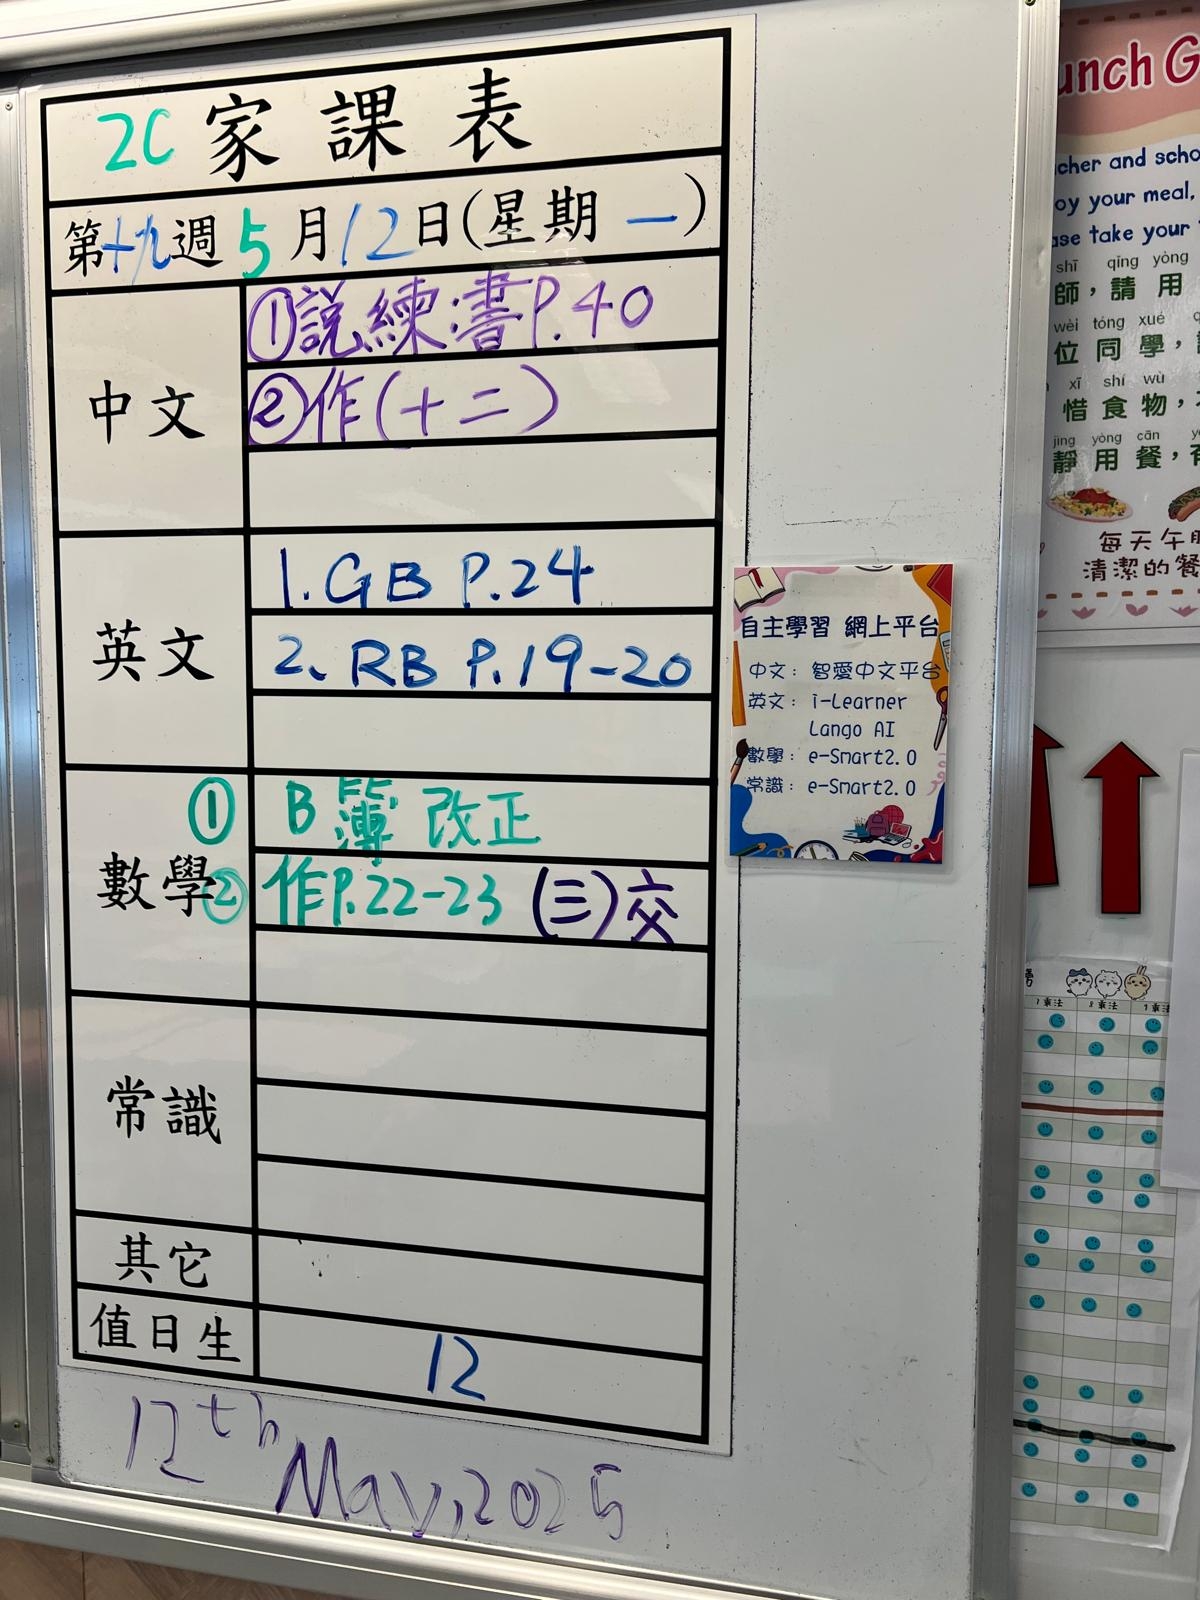 2C 家課表
第十九週 5月12日(星期一)
中文
①説練:書P.40
②作(十二)
英文
1.GB P.24
2、RB P.19-20
數學
① B簿 改正
② 作P.22-23 (三)交
常識
其它
值日生
12
12th May, 2025
自主學習 網上平台
中文: 智愛中文平台
英文: i-Learner
Lango AI
數學: e-Smart2.0
常識: e-Smart2.0
unch G
cher and scho
oy your meal,
ase take your
shī qīng yòng
師,請用
wèi tóng xué
位同學,
xī shí wù
惜食物,
jìng yòng cān
靜用餐,
每天午
清潔的餐
7乘法 8乘法 9乘法